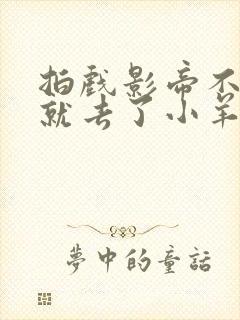 拍戲影帝不
就去了小羊
夢中的童話